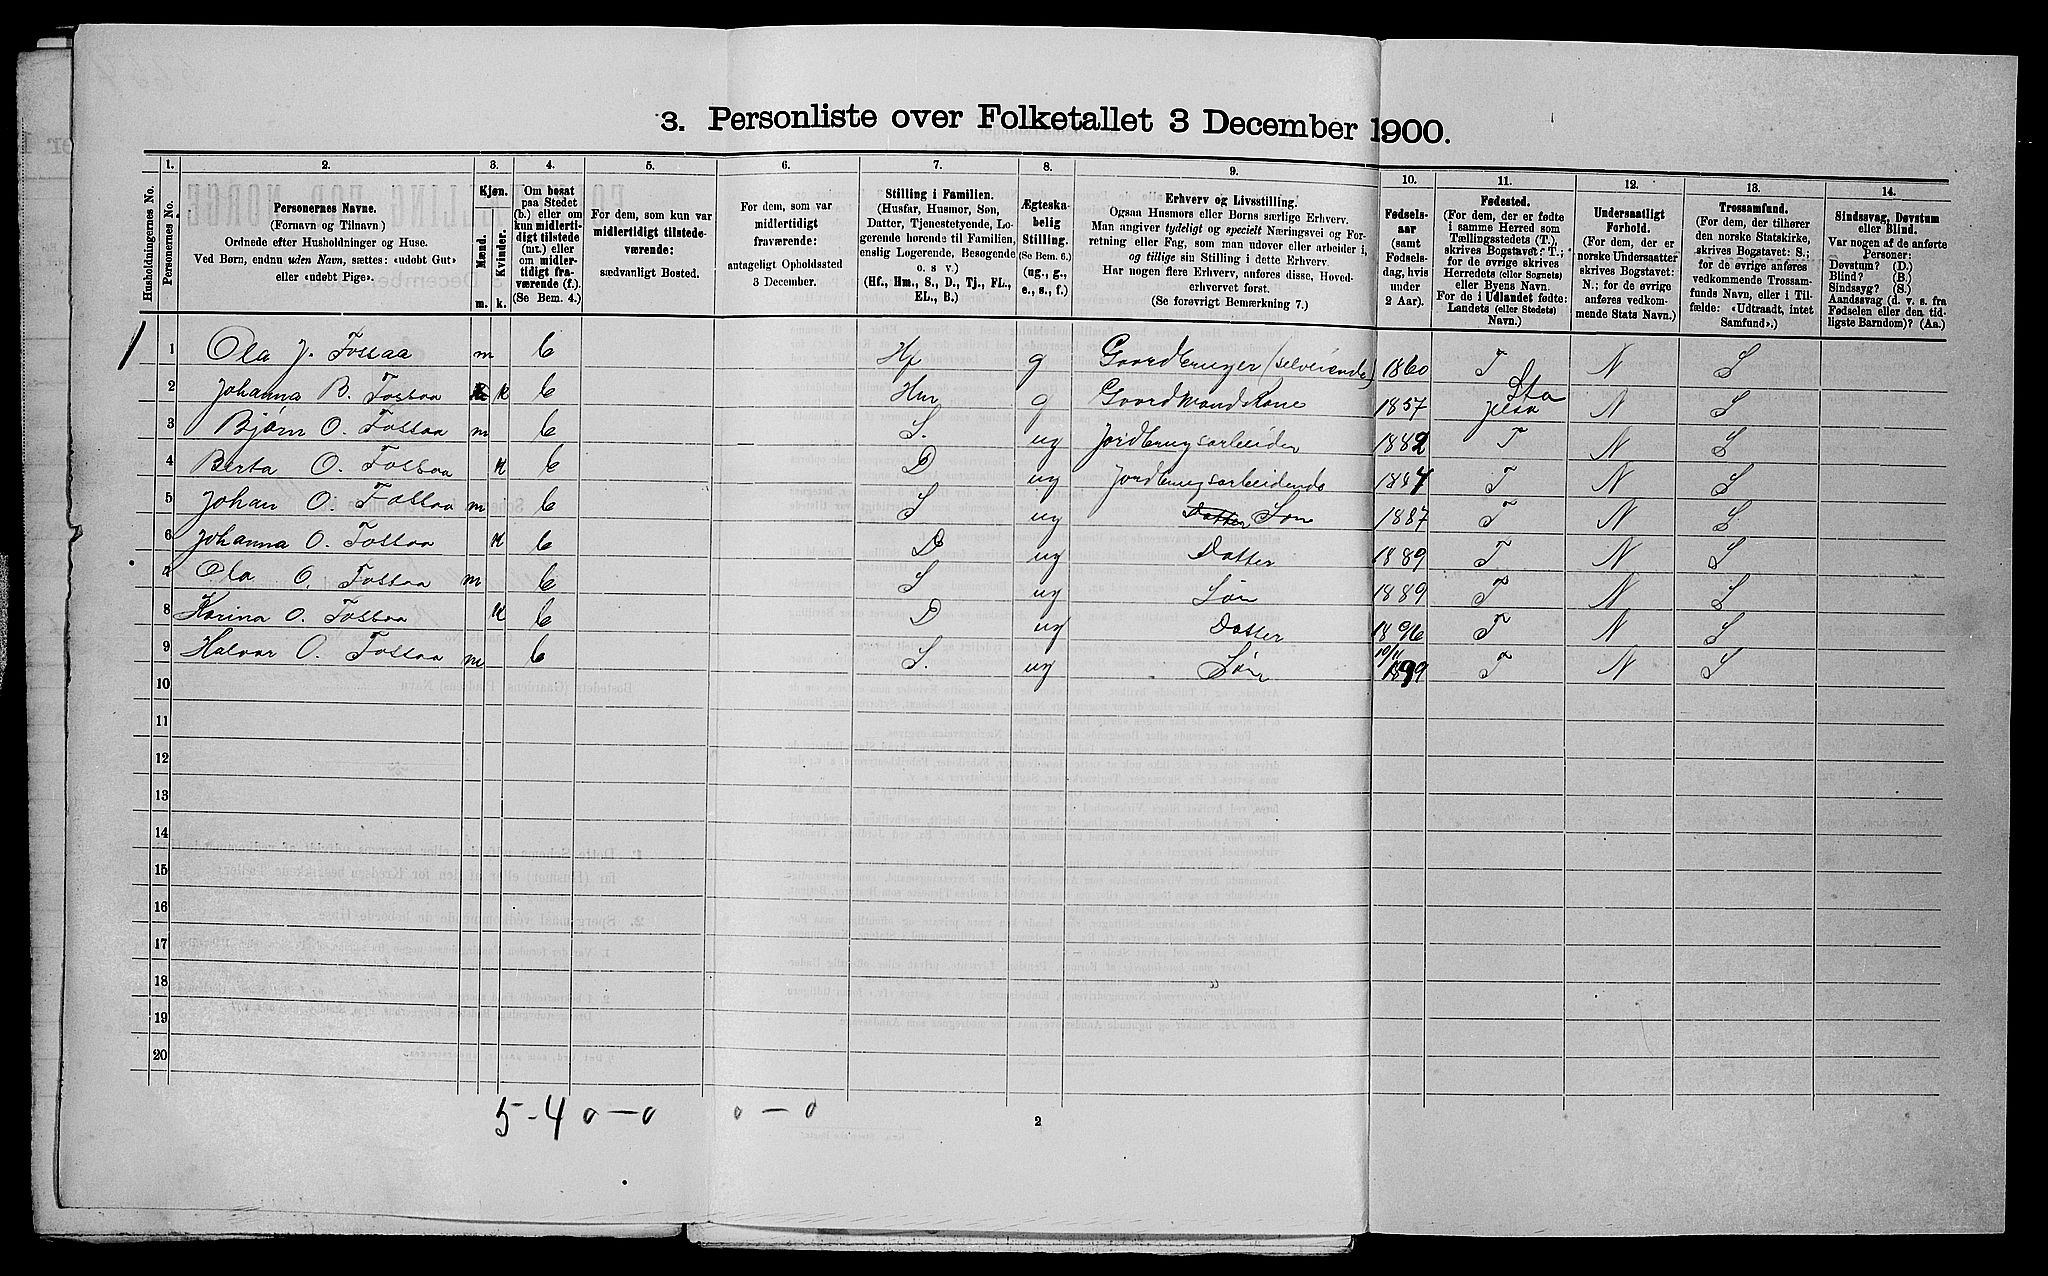 3. Personliste over Folketallet 3 December 1900.
1. 2. 3. 4. 5. 6. 7. 8. 9. 10. 11. 12. 13. 14.
Husholdningernes No.
Personernes No.
Personernes Navne.
(Fornavn og Tilnavn)
Ordnede efter Husholdninger og Huse.
Ved Børn, endnu uden Navn, sættes: «udøbt Gut»
eller «udøbt Pige».
Kjøn.
Mænd.
Kvinder.
m. k.
Om bosat
paa Stedet
(b.) eller om
kun midlerti-
digt tilstede
(mt.) eller
om midler-
tidigt fra-
værende (f.).
(Se Bem. 4.)
For dem, som kun var
midlertidigt tilstede-
værende:
sædvanligt Bosted.
For dem, som var
midlertidigt
fraværende:
antageligt Opholdssted
3 December.
Stilling i Familien.
(Husfar, Husmor, Søn,
Datter, Tjenestetyende, Lo-
gerende hørende til Familien,
enslig Logerende, Besøgende
o. s v.)
(Hf., Hm., S., D., Tj., FL.,
EL., B.)
Ægteska-
belig
Stilling.
(Se Bem. 6.)
(ug., g.,
e., s., f.)
Erhverv og Livsstilling.
Ogsaa Husmors eller Børns særlige Erhverv.
Man angiver tydeligt og specielt Næringsvei og For-
retning eller Fag, som man udover eller arbeider i,
og tillige sin Stilling i dette Erhverv.
Har nogen flere Erhverv, anføres disse, Hoved-
erhvervet først.
(Se forøvrigt Bemærkning 7.)
Fødsels-
aar
(samt
Fødsels-
dag, hvis
under
2 Aar).
Fødested.
(For dem, der er fødte
i samme Herred som
Tællingsstedets (T.),
skrives Bogstavet: T.;
for de øvrige skrives
Herredets (eller Sognets)
eller Byens Navn.
For de i Udlandet fødte:
Landets (eller Stedets)
Navn.)
Undersaatligt
Forhold.
(For dem, der er
norske Undersaatter
skrives Bogstavet:
N.; for de øvrige
anføres vedkom-
mende Stats Navn.)
Trossamfund.
(For dem, der tilhører
den norske Statskirke,
skrives Bogstavet: S.;
for de øvrige anføres
vedkommende Trossam-
funds Navn, eller i Til-
fælde: «Udtraadt, intet
Samfund».)
Sindssvag, Døvstum
eller Blind.
Var nogen af de anførte
Personer:
Døvstum? (D.)
Blind? (B.)
Sindssyg? (S.)
Aandssvag (d. v. s. fra
Fødselen eller den tid-
ligste Barndom)? (Aa.)
1 1 Ola J. Fossaa m b Hf g Gaardbruger (selveiende) 1860 T N S
2 Johanna B. Fossaa k b Hm g Gaardmandskone 1857 Jelsa Sta N S
3 Bjørn O. Fossaa m b S. ug Jordbrugsarbeider 1882 T N S
4 Berta O. Fossaa k b D ug Jordbrugsarbeidende T N S
5 Johan O. Fossaa m b S ug Datter Søn 1887 T N S
6 Johanna O. Fossaa k b D ug Datter 1889 T N S
7 Ola O. Fossaa m b S ug Søn 1889 T N S
8 Karina O. Fossaa k b D ug Datter 1896 T N S
9 Halvar O. Fossaa m b S. ug Søn 10/11 1899 T N S
10
11
12
13
14
15
16
17
18
19
20
5-4 0-0 0-0
2